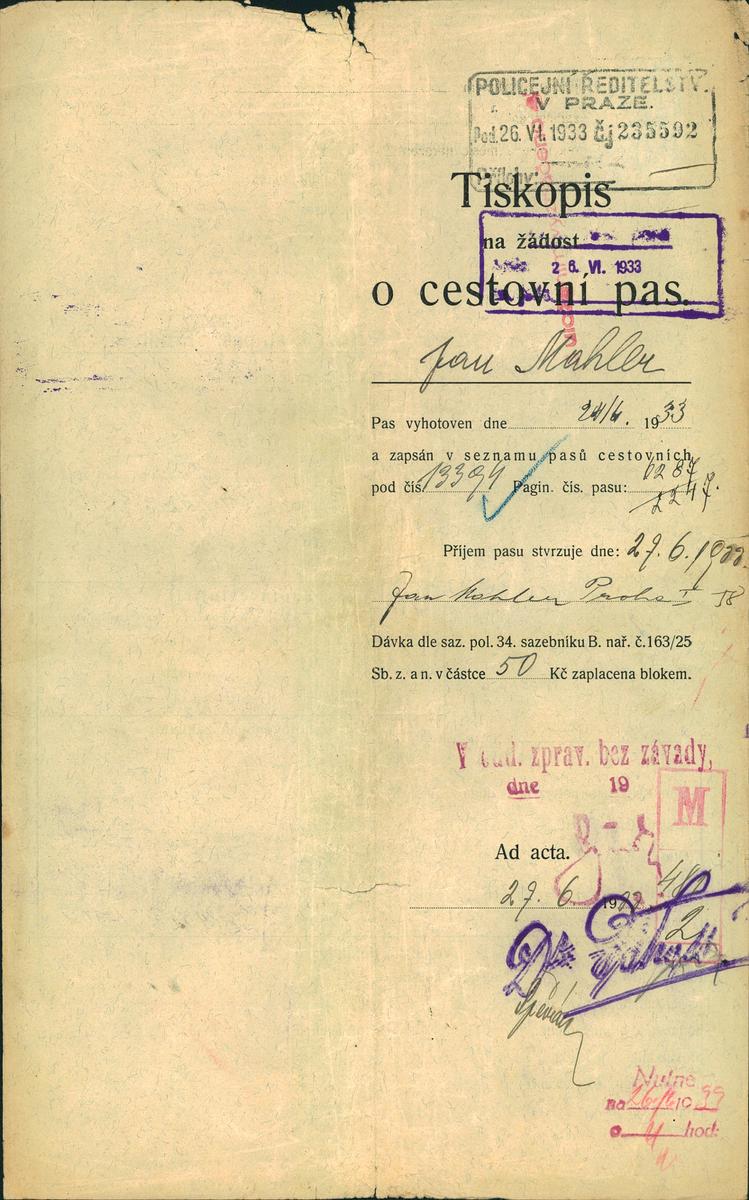 POLICEJNÍ ŘEDITELSTV.
V PRAZE.
Pod. 26. VI. 1933 čj 235592
Přílohy:
Tiskopis
na žádost
26. VI. 1933
o cestovní pas.
Jan Mahler
Pas vyhotoven dne 24/6. 1933
a zapsán v seznamu pasů cestovních
pod čís. 13394 Pagin. čís. pasu: 6287
2247.
Příjem pasu stvrzuje dne: 27.6.1933
Jan Mahler Praha I
Dávka dle saz. pol. 34. sazebníku B. nař. č. 163/25
Sb. z. a n. v částce 50 Kč zaplacena blokem.
V zprav. bez závady,
dne 19
M
Ad acta.
27. 6. 1933
48
2
Dr.
Nutné
na 26/6 10
o 11 hod: